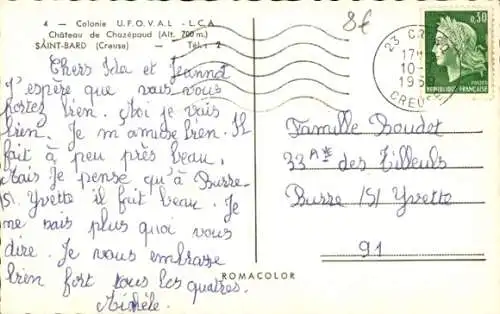 4 - Colonie U.F.O.V.A.L - L.C.A.
Château de Chazépaud (Alt. 700 m.)
SAINT-BARD (Creuse) - Tél. : 2
8€
23 C
17H
10-
19
CREUSE
0,30
REPUBLIQUE FRANÇAISE
Chers Ida et Jeannot
J'espère que vous vous
portez bien. Moi je vais
bien. Je m'amuse bien. Il
fait à peu près beau.
Mais Je pense qu'à Burre.
/S/. Yvette il fait beau. Je
ne sais plus quoi vous
dire. Je vous embrasse
bien fort tous les quatres.
Michèle.
Famille Boudot
33 A** des Tilleuls
Burre /S/ Yvette
91
ROMACOLOR